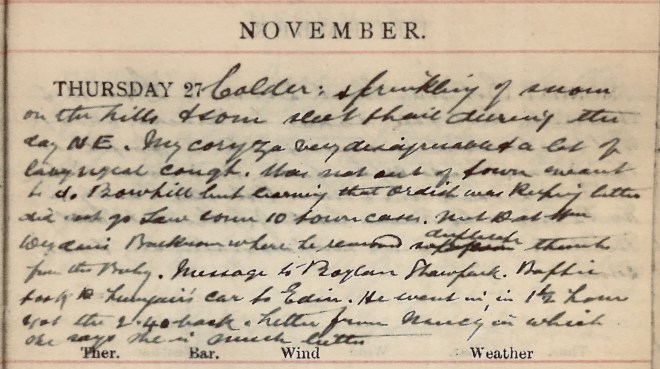 NOVEMBER.
THURSDAY 27 Colder: sprinkling of snow
on the hills & some sleet & hail during the
day NE. My coryza very disagreeable & a lot of
laryngeal cough. Was not out of town meant
to do Bowhill but learning that Ordish was keeping better
did not go Saw some 10 town cases. Met Dat
where he removed duplicate thumb
from the Baby. Message to Shawpark. Baffie
took car to Edin. He went in, in 1½ hour
got the 2.40 back. Letter from Nancy in which
she says she is much better
Ther. Bar. Wind Weather